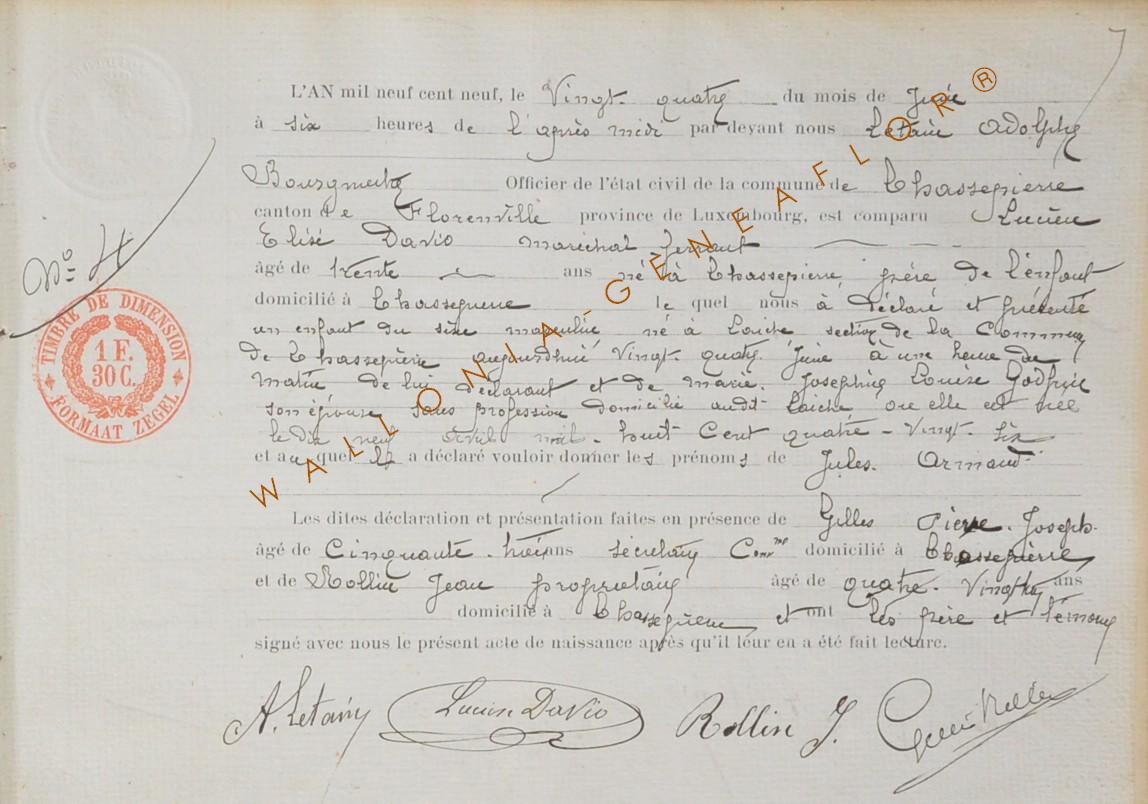 L'AN mil neuf cent neuf, le Vingt quatre du mois de Juin
à six heures de l'après midi par devant nous Letaix Adolphe
Bourgmestre Officier de l'état civil de la commune de Chassepierre
canton de Florenville province de Luxembourg, est comparu Lucien
Elisé Davio Maréchal ferrant
âgé de trente ans né à Chassepierre père de l'enfant
domicilié à Chassepierre le quel nous à déclaré et présenté
un enfant du sexe masculin né à Laiche section de la Commune
de Chassepierre aujourdhui Vingt quatre Juin à une heure du
matin de lui déclarant et de Marie Josephine Louise
son épouse sans profession domicilié audit Laiche ou elle est née
le dix neuf avril mil huit Cent quatre-Vingt six
et auquel il a déclaré vouloir donner les prénoms de Jules Armand
Les dites déclaration et présentation faites en présence de Gilles Pierre Joseph
âgé de Cinquante trois ans secrétaire Comm^al domicilié à Chassepierre
et de Rollin Jean propriétaire âgé de quatre Vingts ans
domicilié à Chassepierre et ont les père et témoins
signé avec nous le présent acte de naissance après qu'il leur en a été fait lecture.
Lucien Davio Rollin J.
N° 4
TIMBRE DE DIMENSION
1 F.
30 C.
FORMAAT ZEGEL
WALLONIA-GENEAFLOR®